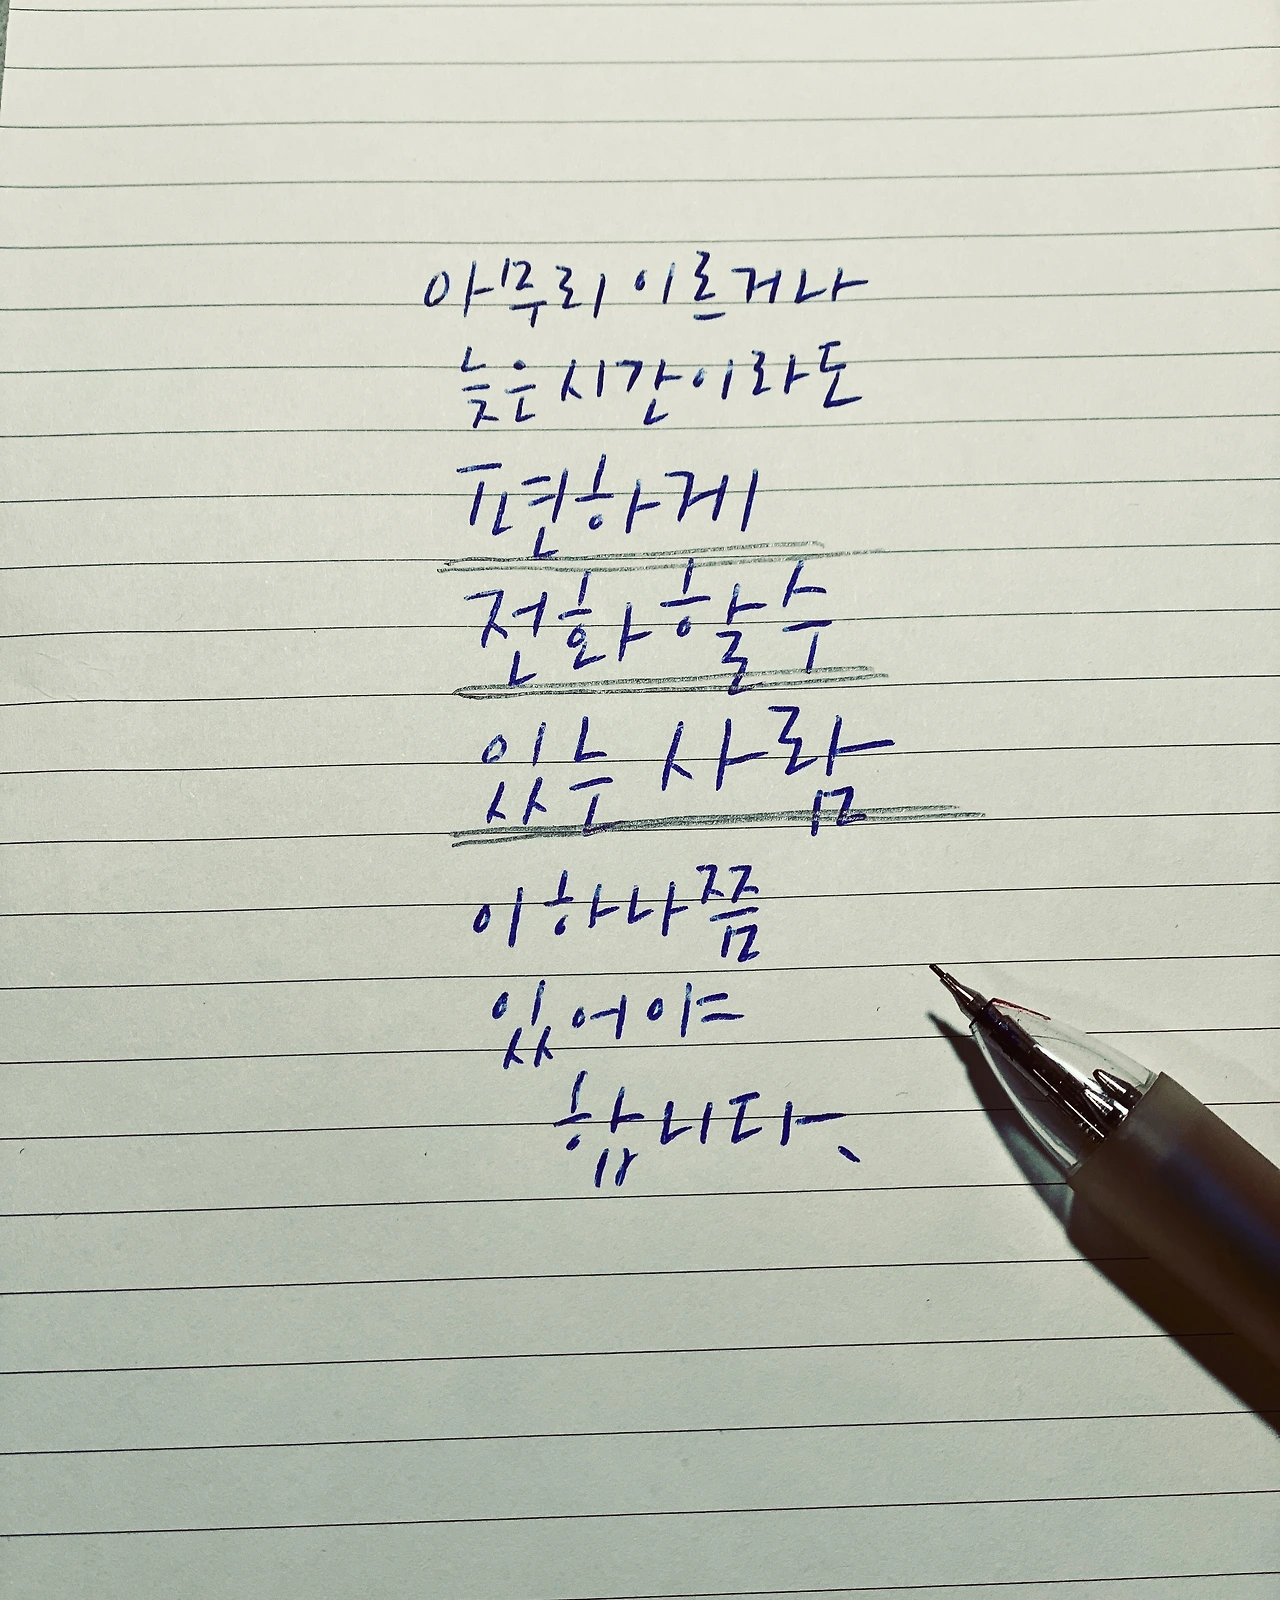 아무리 이르거나
늦은 시간이라도
편하게
전화 할 수
있는 사람
이 하나쯤
있어야
합니다.